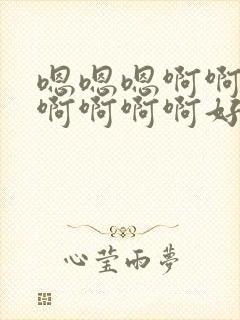 嗯嗯嗯啊啊
啊啊啊啊好
心莹雨梦